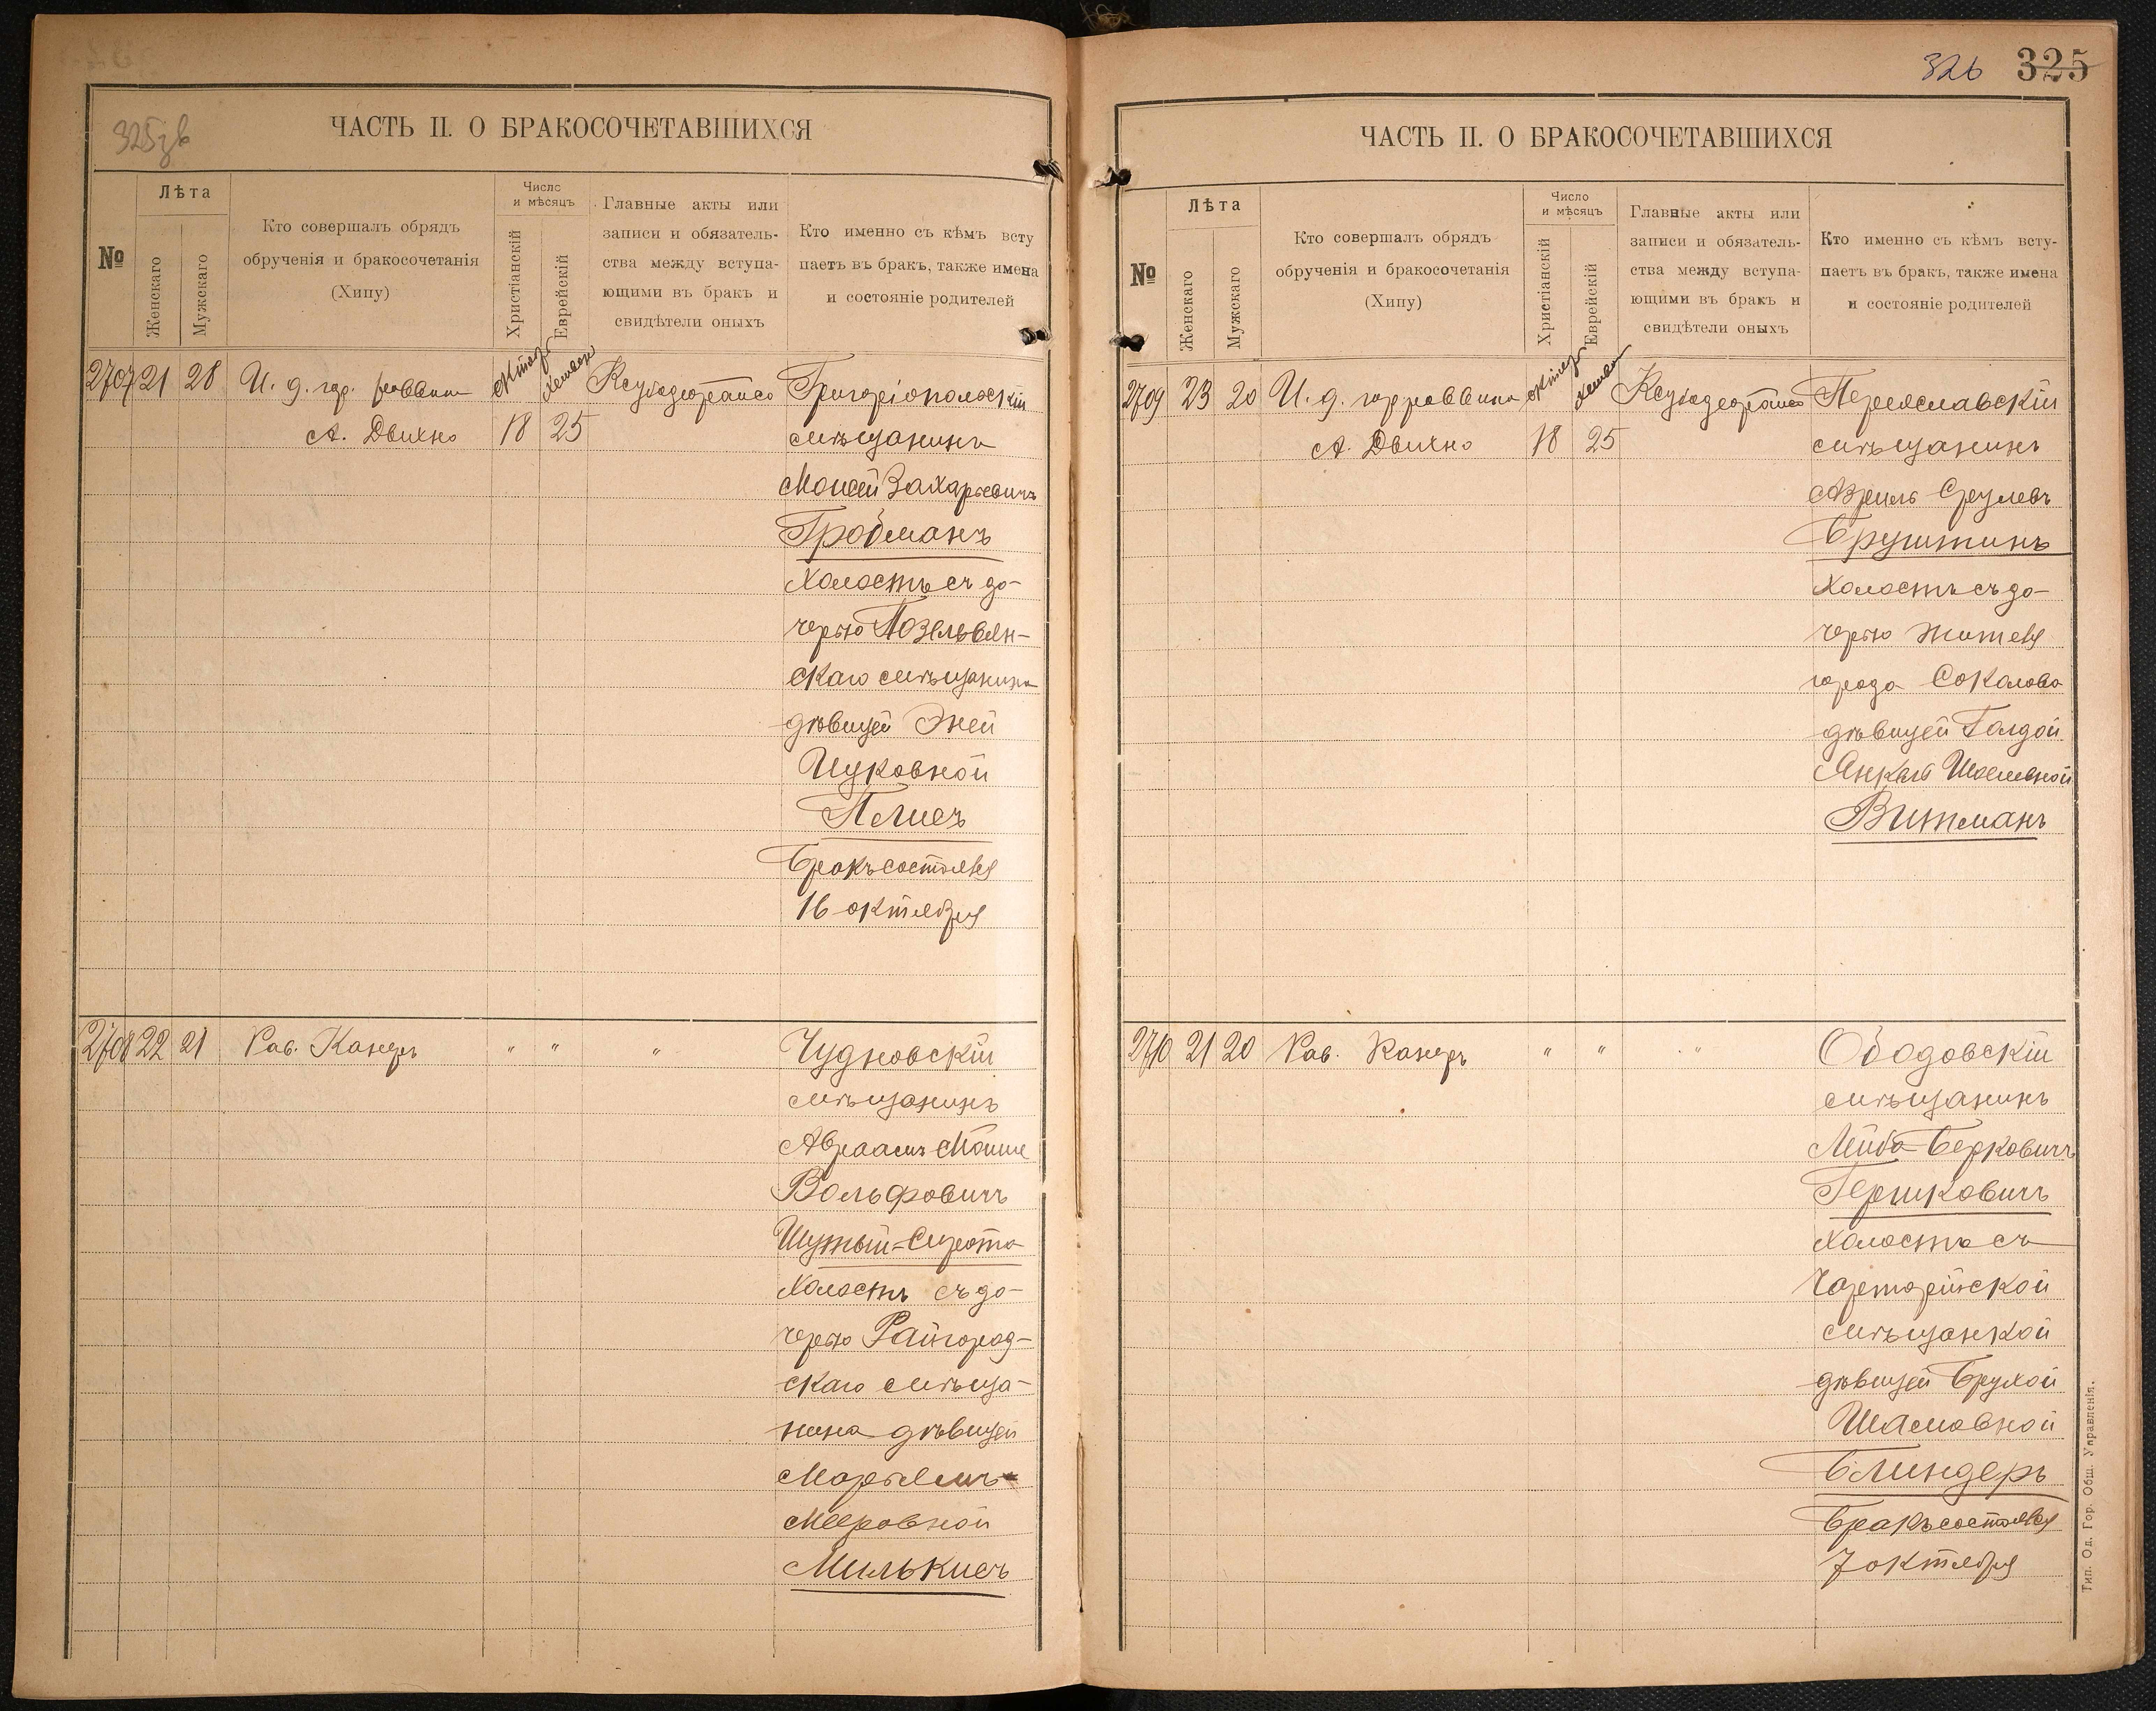 325зв
ЧАСТЬ II. О БРАКОСОЧЕТАВШИХСЯ
№
Лѣта
Женскаго
Мужскаго
Кто совершалъ обрядъ
обрученія и бракосочетанія
(Хипу)
Число
и мѣсяцъ
Христіанскій
Еврейскій
Главные акты или
записи и обязатель-
ства между вступа-
ющими въ бракъ и
свидѣтели оныхъ
Кто именно съ кѣмъ всту
паетъ въ бракъ, также имена
и состояніе родителей
2707 21 28 И. д. гор. раввина
А. Двихно 18 25
Григоріопольскій
мѣщанинъ
Моисей Захарьевичъ
Гробманъ
холостъ съ до-
черью Позельвян-
скаго мѣщанина
дѣвицей Эней
Ицковной
Плисъ
Бракъ состоялся
16 октября
2708 22 21 Рав. Канеръ " " "
Чудновскій
мѣщанинъ
Авраамъ Мойше
Вольфовичъ
Шутый-Сирота
холостъ съ до-
черью Райгород-
скаго мѣща-
нина дѣвицей
Марьямъ
Мееровной
Милькисъ
326 325
ЧАСТЬ II. О БРАКОСОЧЕТАВШИХСЯ
№
Лѣта
Женскаго
Мужскаго
Кто совершалъ обрядъ
обрученія и бракосочетанія
(Хипу)
Число
и мѣсяцъ
Христіанскій
Еврейскій
Главные акты или
записи и обязатель-
ства между вступа-
ющими въ бракъ и
свидѣтели оныхъ
Кто именно съ кѣмъ всту-
паетъ въ бракъ, также имена
и состояніе родителей
2709 23 20 И. д. гор раввина
А. Двихно 18 25
Переяславскій
мѣщанинъ
Азриль Срулевъ
Бруштинъ
холостъ съ до-
черью жителя
города Соколова
дѣвицей Голдой
Янкель Шоелевной
Витманъ
2710 21 20 Рав. Канеръ " " "
Ободовскій
мѣщанинъ
Лейба Берковичъ
Гершковичъ
холостъ съ
Чарторійской
мѣщанкой
дѣвицей Брухой
Шамовной
Блиндеръ
Бракъ состоялся
7 октября
Тип. Од. Гор. Общ. Управленія.